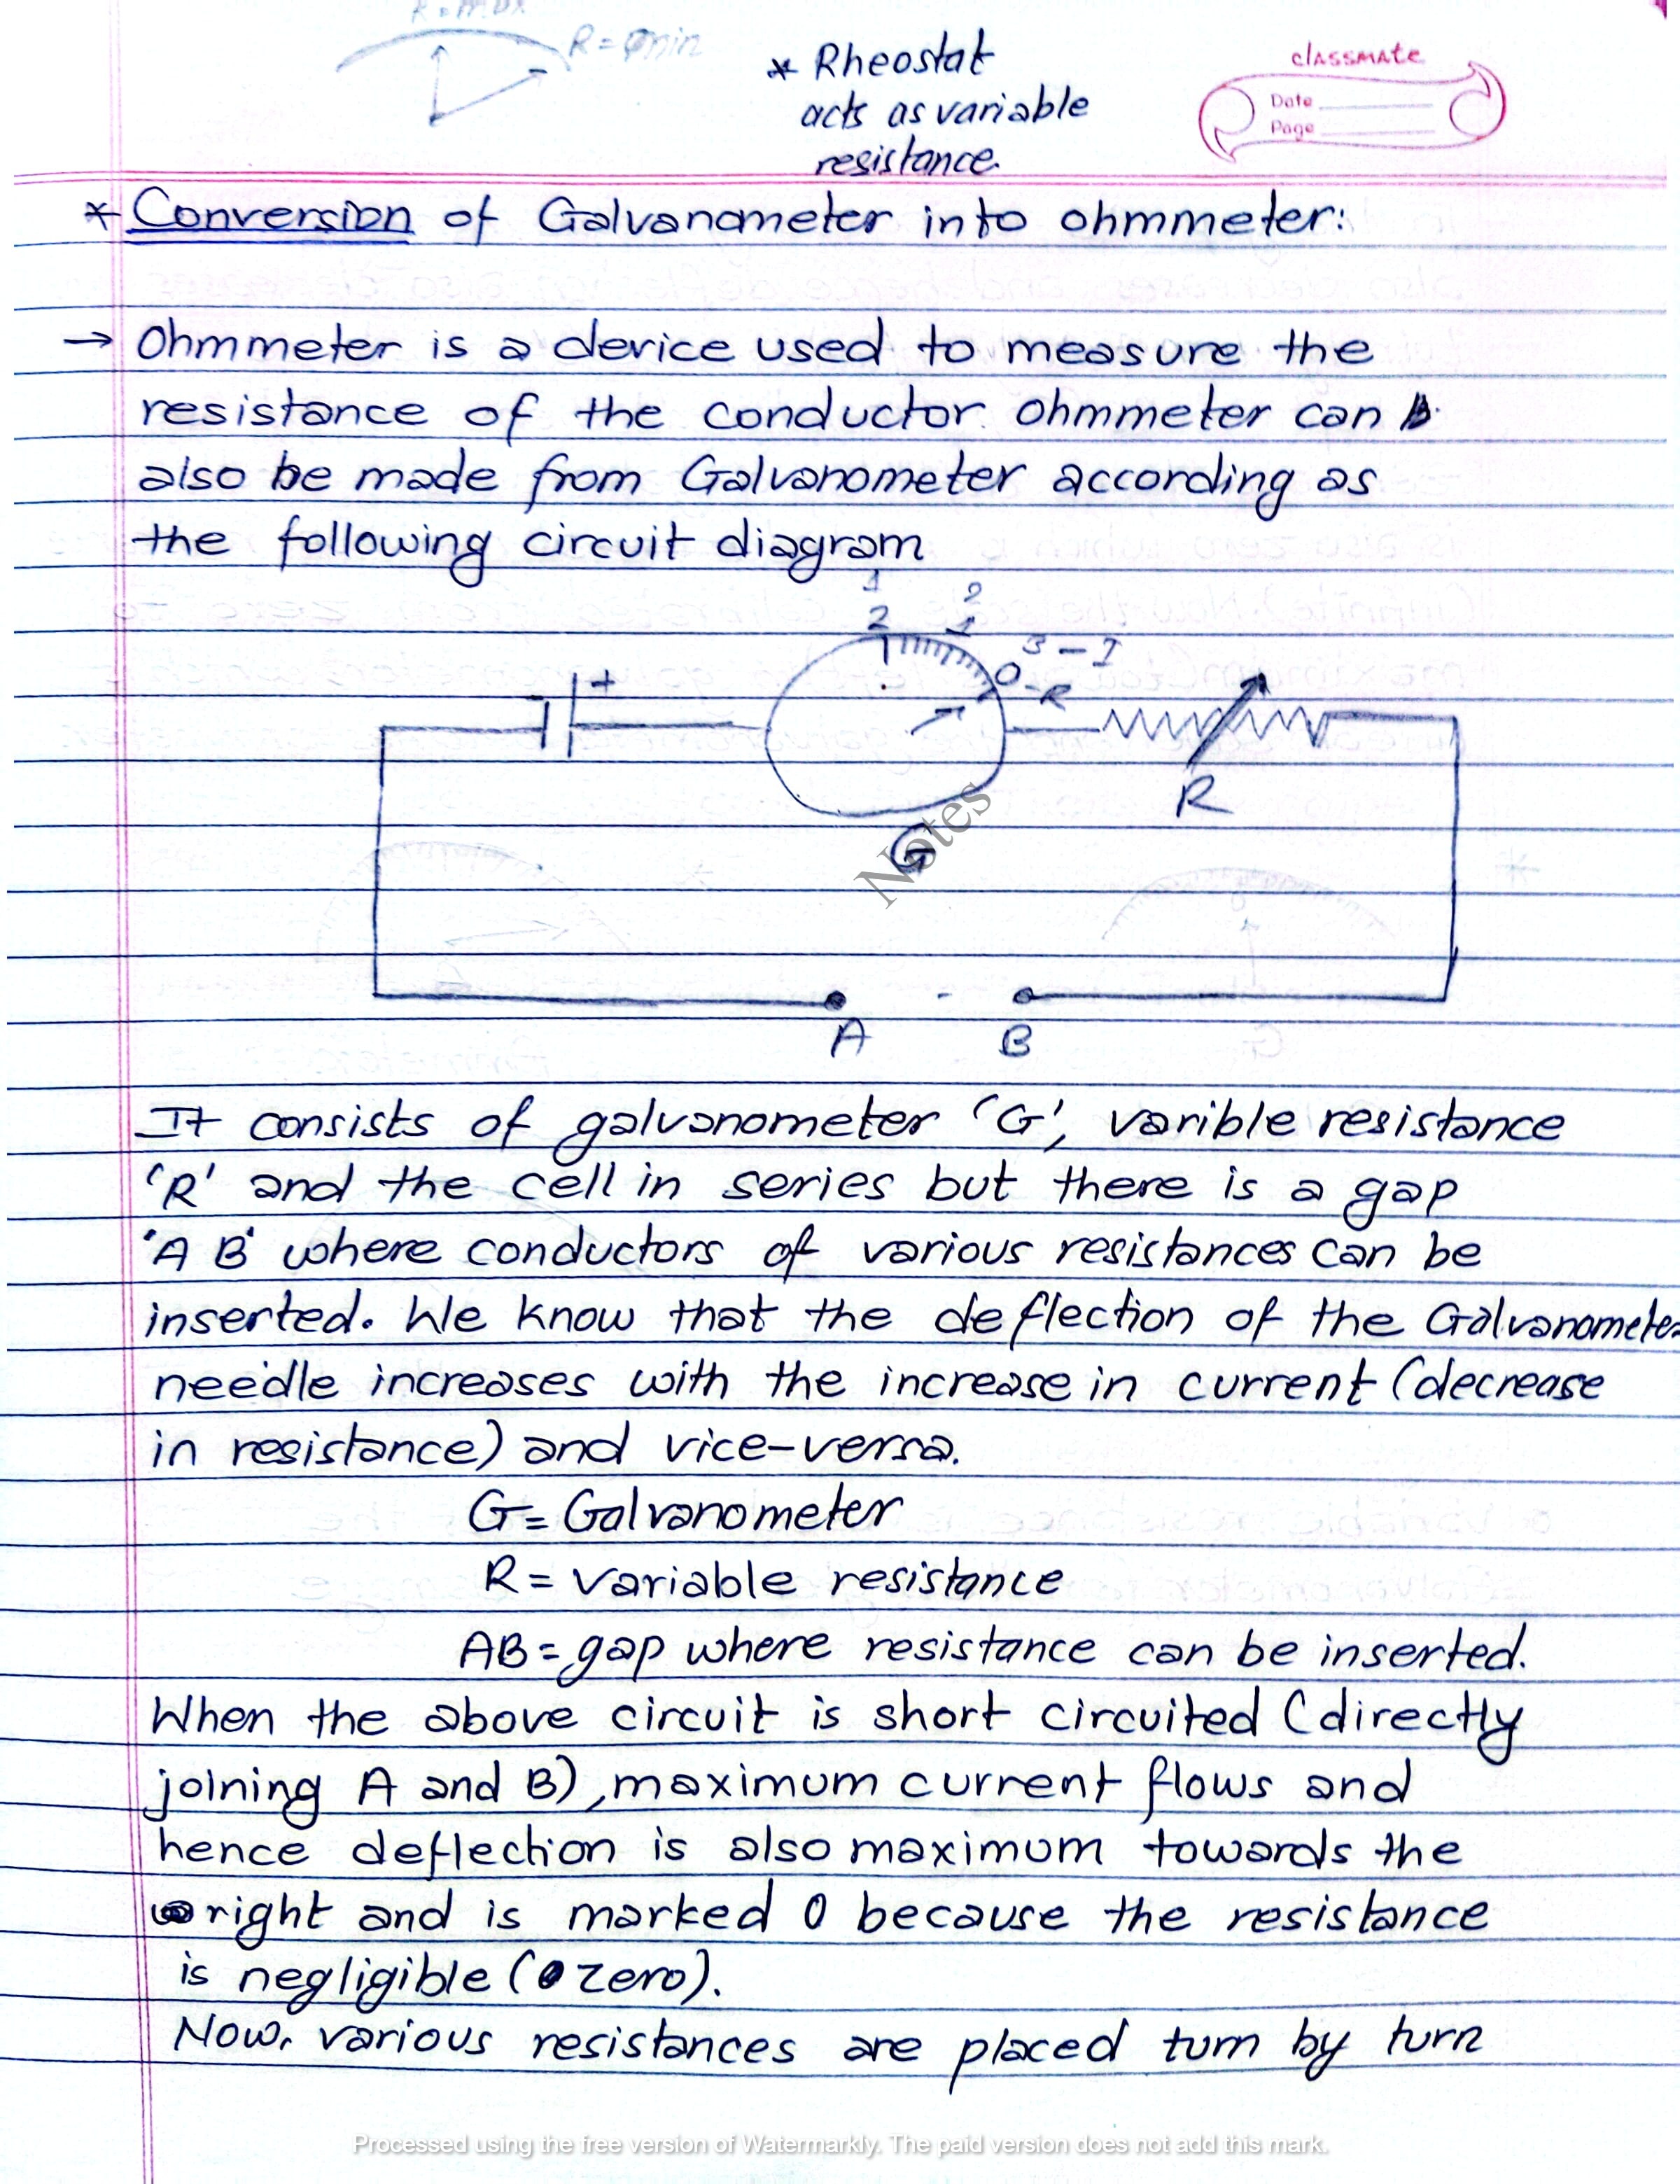 R = max
R = min
* Rheostat
acts as variable
resistance.
classmate
Date
Page
* Conversion of Galvanometer into ohmmeter:
→ Ohmmeter is a device used to measure the
resistance of the conductor. Ohmmeter can
also be made from Galvanometer according as
the following circuit diagram
1 2 3 - I
2 1 0 - R
- +
R
G
Notes
A B
It consists of galvanometer 'G', varible resistance
'R' and the cell in series but there is a gap
'AB' where conductors of various resistances can be
inserted. We know that the deflection of the Galvanometer
needle increases with the increase in current (decrease
in resistance) and vice-versa.
G = Galvanometer
R = variable resistance
AB = gap where resistance can be inserted.
When the above circuit is short circuited (directly
joining A and B), maximum current flows and
hence deflection is also maximum towards the
right and is marked 0 because the resistance
is negligible (zero).
Now, various resistances are placed turn by turn
Processed using the free version of Watermarkly. The paid version does not add this mark.